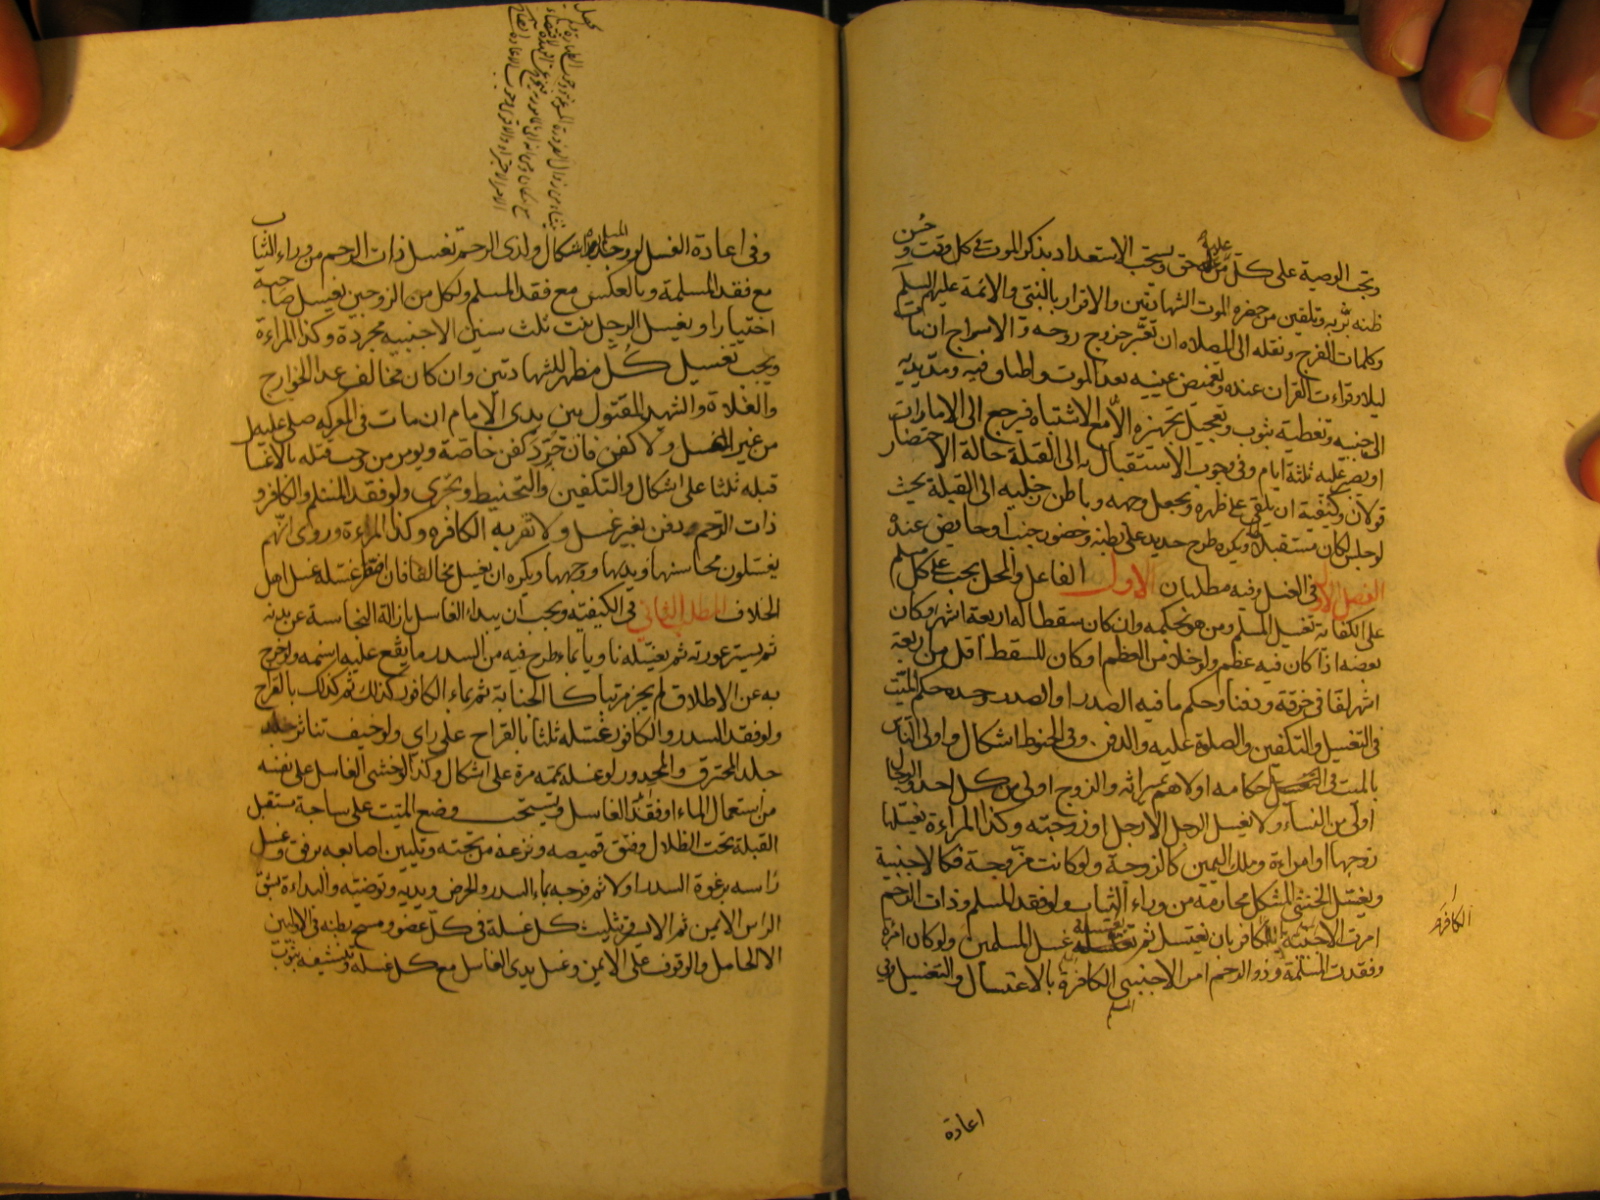 وتجب الوصية على كل من عليه حق ويستحب الاستعداد بذكر الموت في كل وقت وحسن
ظنه بربه وتلقين من حضره الموت الشهادتين والاقرار بالنبي والائمة عليهم السلم
وكلمات الفرج ونقله الى مصلاه ان تعسر خروج روحه والاسراج ان مات
ليلا وقراءت القران عنده وتغميض عينيه بعد الموت واطباق فيه ومد يديه
الى جنبيه وتغطيته بثوب وتعجيل تجهيزه الا مع الاشتباه فيرجع الى الامارات
او يصبر عليه ثلثة ايام وفي وجوب الاستقبال به الى القبلة حالة الاحتضار
قولان وكيفيته ان يلقى على ظهره ويجعل وجهه وباطن رجليه الى القبلة بحيث
لو جلس كان مستقبلا ويكره طرح حديد على بطنه وحضور جنب او حايض عنده
الفصل الاول في الغسل وفيه مطلبان الاول الفاعل والمحل يجب على كل مسلم
على الكفاية تغسيل المسلم ومن هو بحكمه وان كان سقطا له اربعة اشهر او كان
بعضه اذا كان فيه عظم ولو خلا من العظم او كان للسقط اقل من اربعة
اشهر لفا في خرقة ودفنا وحكم ما فيه الصدر او الصدر وحده حكم الميت
في التغسيل والتكفين والصلوة عليه والدفن وفي الحنوط اشكال واولى الناس
بالميت في احكامه اولاهم بميراثه والزوج اولى من كل احد والرجال
اولى من النساء ولا يغسل الرجل الا رجل او زوجته وكذا المراءة يغسلها
زوجها او امراءة وملك اليمين كالزوجة ولو كانت مزوجة فكالاجنبية
ويغسل الخنثى المشكل محارمه من وراء الثياب ولو فقد المسلم وذات الرحم
امرت الاجنبية الكافر بان يغتسل ثم يغسله غسل المسلمين ولو كان امرءة
وفقدت المسلمة وذو الرحم امر الاجنبي الكافرة بالاغتسال والتغسيل وفي
المسلم
الكافرة
اعادة
وفي اعادة الغسل لو وجد المسلم بعده اشكال ولذي الرحم تغسل ذات الرحم من وراء الثياب
مع فقد المسلمة وبالعكس مع فقد المسلم ولكل من الزوجين تغسيل صاحبه
اختيارا ويغسل الرجل بنت ثلث سنين الاجنبيه مجردة وكذا المراءة
ويجب تغسيل كل مظهر للشهادتين وان كان مخالفا عدا الخوارج
والغلاة والشهيد المقتول بين يدى الامام ان مات في المعركه صلى عليه
من غير غسل ولا كفن فان جرد كفن خاصة ويومر من وجب قتله بالاغتسال
قبله ثلثا على اشكال والتكفين والتحنيط ويجزى ولو فقد المسلم والكافر و
ذات الرحم دفن بغير غسل ولا تقربه الكافره وكذا المراءة وروى انهم
يغسلون محاسنها ويديها ووجهها ويكره ان يغسل مخالفا فان اضطر غسله غسل اهل
الخلاف المطلب الثاني في الكيفية ويجب ان يبداء الغاسل بازالة النجاسة عن بدنه
ثم يستر عورته ثم يغسله ناويا بماء طرح فيه من السدر ما يقع عليه اسمه ولو خرج
به عن الاطلاق لم يجز مرتبا كالجنابة ثم بماء الكافور كذلك ثم كذلك بالقراح
ولو فقد السدر والكافور غسله ثلثا بالقراح على راي ولو خيف تناثر جلد
جلد المحترق والمجدور لو غسله يممه مرة على اشكال وكذا لو خشى الغاسل على نفسه
من استعمال الماء او فقد الغاسل ويستحب وضع الميت على ساجة مستقبل
القبلة تحت الظلال وفتق قميصه ونزعه من تحته وتليين اصابعه برفق وغسل
راسه برغوة السدر اولا ثم فرجه بماء السدر والحرض ويديه وتوضيته والبداءة بشق
الراس الايمن ثم الايسر وتثليث كل غسلة في كل عضو ومسح بطنه في الاوليين
الا الحامل والوقوف على الايمن وغسل يدى الغاسل مع كل غسلة وتنشيفه بثوب